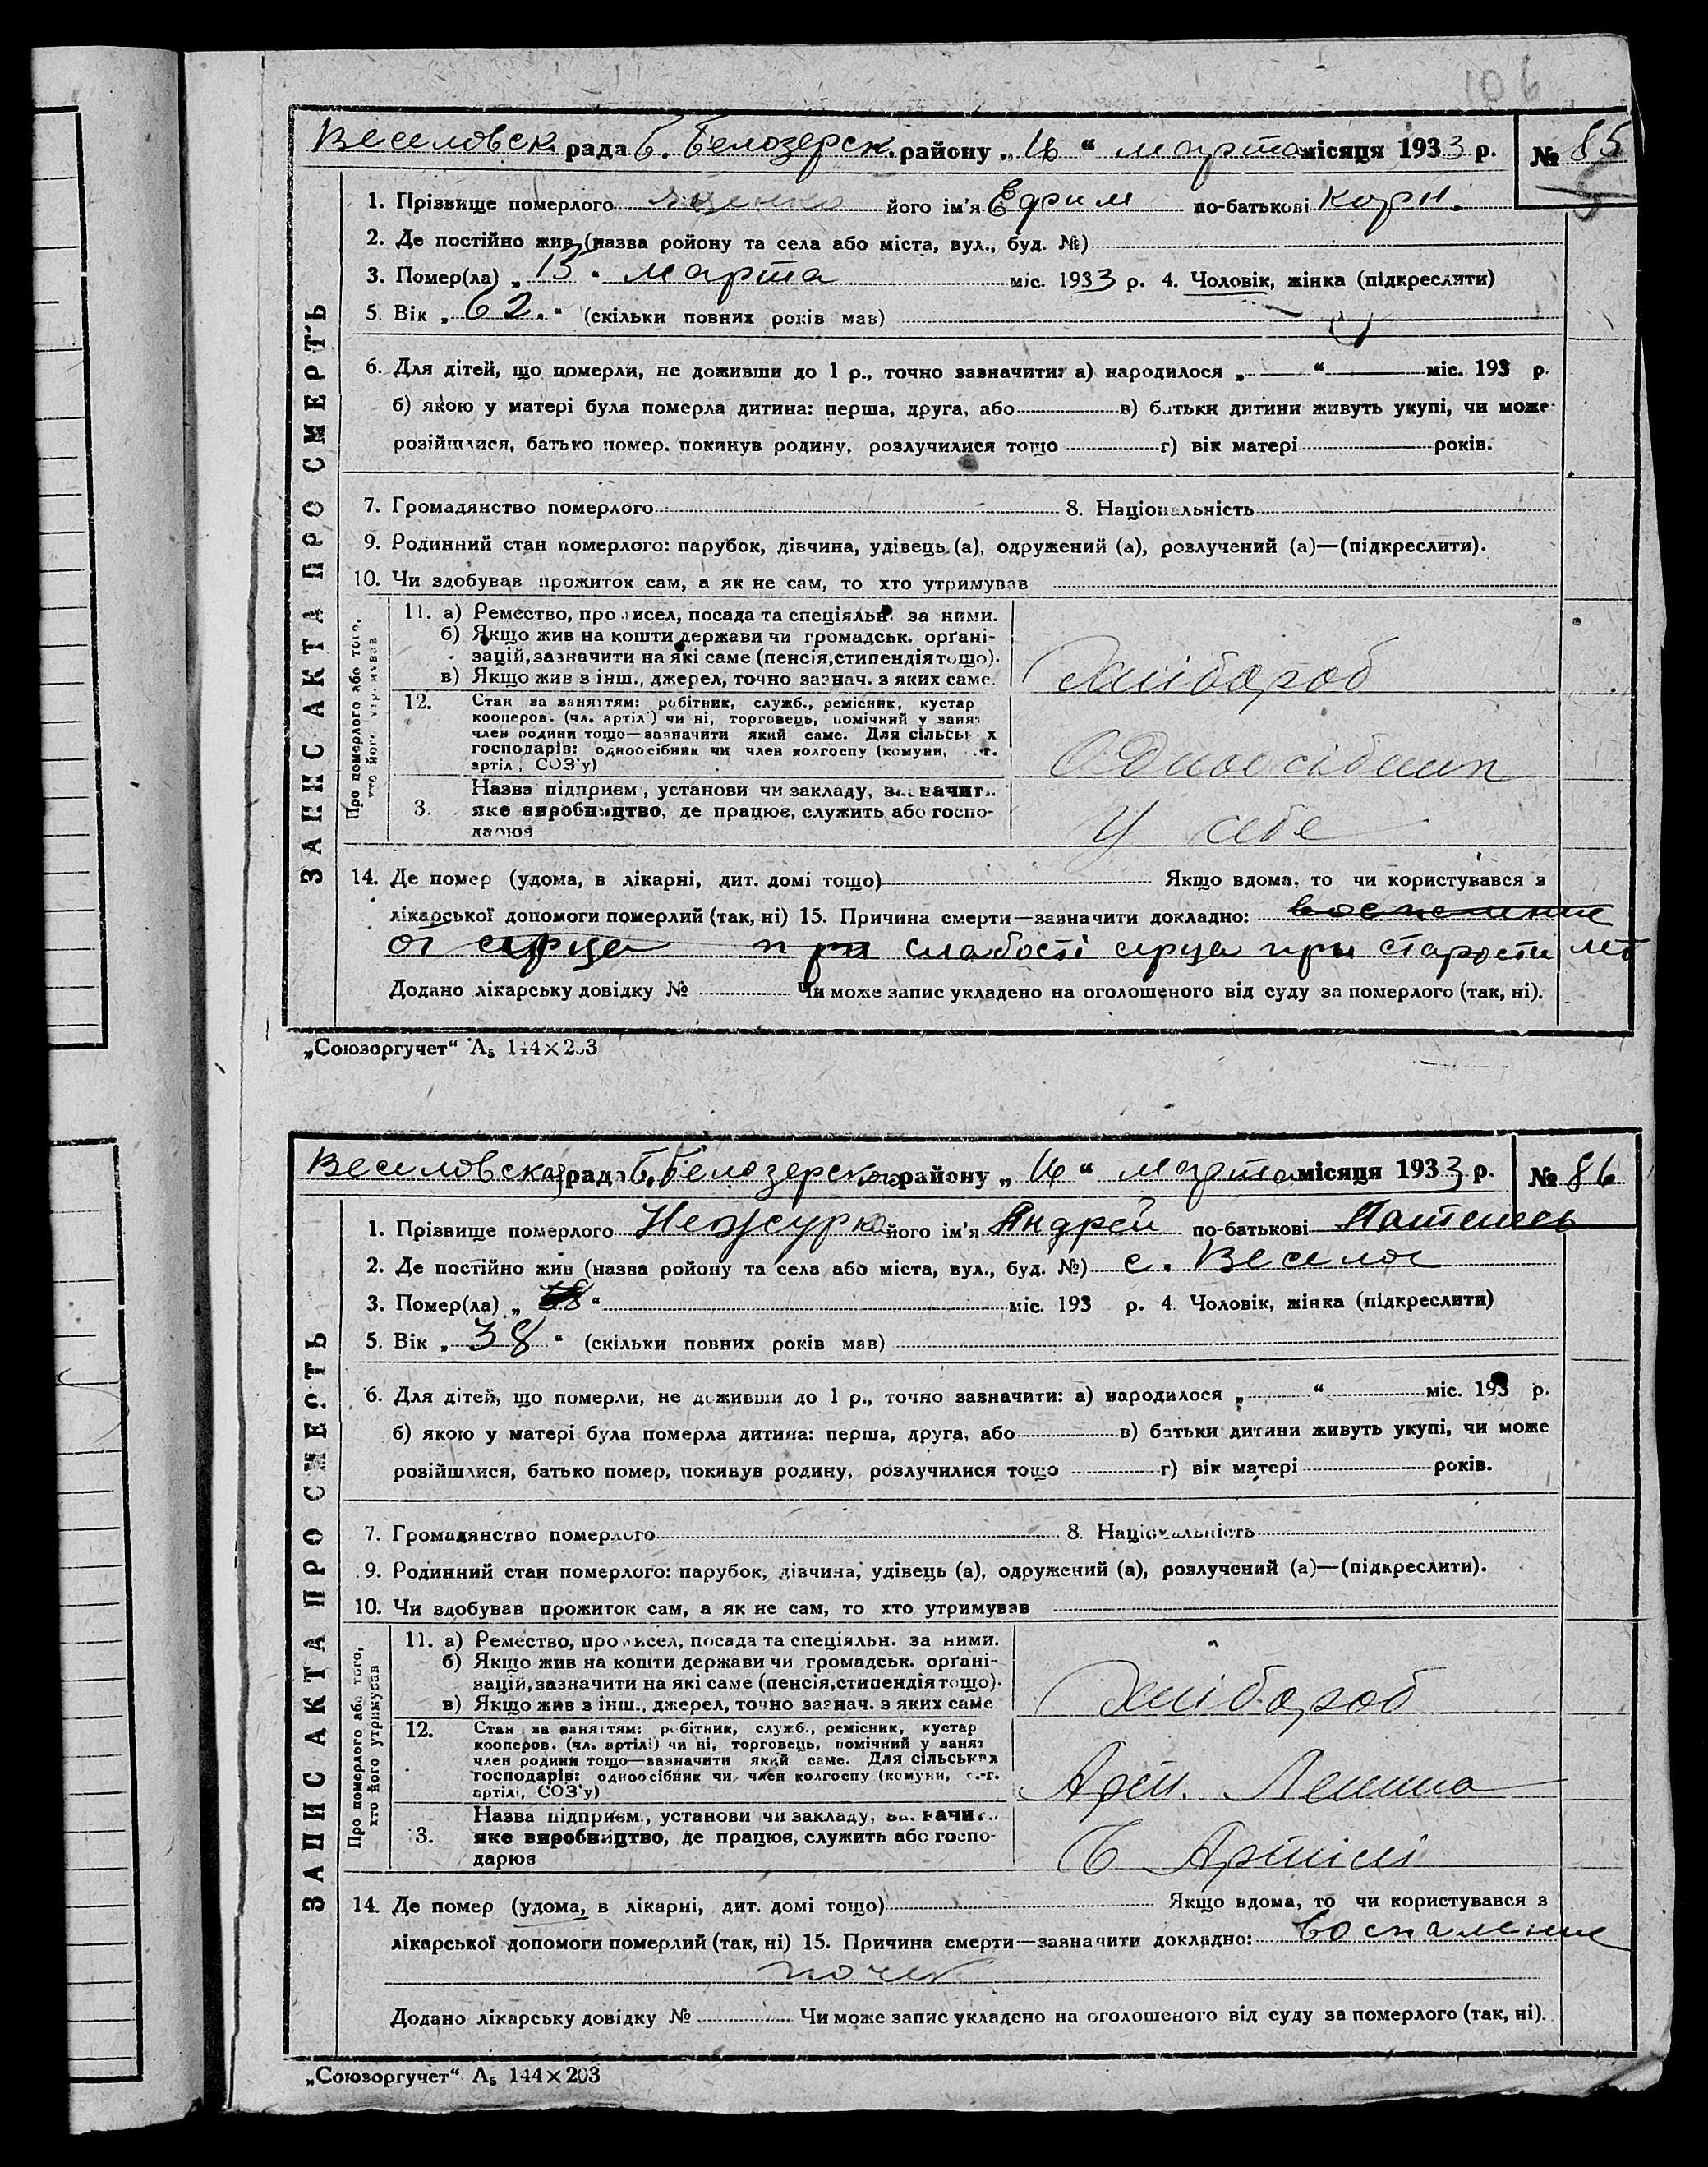 106
Веселовск. рада Б. Белозерск. району „ 16 “ марта місяця 1933 р. № 85
1. Прізвище померлого Яценко його ім'я Ефрим по-батькові Корн.
2. Де постійно жив (назва ройону та села або міста, вул., буд. №)
3. Помер(ла) „ 15 “ марта міс. 1933 р. 4. Чоловік, жінка (підкреслити)
5. Вік „ 62. “ (скільки повних років мав)
6. Для дітей, що померли, не доживши до 1 р., точно зазначити: а) народилося „ “ міс. 193 р.
б) якою у матері була померла дитина: перша, друга, або в) батьки дитини живуть укупі, чи може
розійшлися, батько помер, покинув родину, розлучилися тощо г) вік матері років.
7. Громадянство померлого 8. Національність
9. Родинний стан померлого: парубок, дівчина, удівець (а), одружений (а), розлучений (а)—(підкреслити).
10. Чи здобував прожиток сам, а як не сам, то хто утримував
ЗАПИС АКТА ПРО СМЕРТЬ
Про померлого або того, хто його утримував
11. а) Ремество, промисел, посада та спеціяльн. за ними.
б) Якщо жив на кошти держави чи громадськ. орґані-
зацій, зазначити на які саме (пенсія, стипендія тощо).
в) Якщо жив з інш., джерел, точно зазнач. з яких саме.
Хлібороб
12. Стан за заняттям: робітник, служб., ремісник, кустар
кооперов. (чл. артілі) чи ні, торговець, помічний у занят
член родини тощо—зазначити який саме. Для сільських
господарів: одноосібник чи член колгоспу (комуни, с.-г.
артілі, СОЗ'у)
Одноосібник
Назва підприєм., установи чи закладу, зазначити
3. яке виробництво, де працює, служить або госпо-
дарює
У себе
14. Де помер (удома, в лікарні, дит. домі тощо) Якщо вдома, то чи користувався з
лікарської допомоги померлий (так, ні) 15. Причина смерти—зазначити докладно:
от серца при слабості серца при старости лет
Додано лікарську довідку № Чи може запис укладено на оголошеного від суду за померлого (так, ні).
„Союзоргучет“ А5 144×203
Веселовская рада Б. Белозерского району „ 16 “ марта місяця 1933 р. № 86
1. Прізвище померлого Нежурко його ім'я Андрей по-батькові
2. Де постійно жив (назва ройону та села або міста, вул., буд. №) с. Веселое
3. Помер(ла) „ “ міс. 193 р. 4. Чоловік, жінка (підкреслити)
5. Вік „ 38 “ (скільки повних років мав)
6. Для дітей, що померли, не доживши до 1 р., точно зазначити: а) народилося „ “ міс. 193 р.
б) якою у матері була померла дитина: перша, друга, або в) батьки дитини живуть укупі, чи може
розійшлися, батько помер, покинув родину, розлучилися тощо г) вік матері років.
7. Громадянство померлого 8. Національність
9. Родинний стан померлого: парубок, дівчина, удівець (а), одружений (а), розлучений (а)—(підкреслити).
10. Чи здобував прожиток сам, а як не сам, то хто утримував
ЗАПИС АКТА ПРО СМЕРТЬ
Про померлого або того, хто його утримував
11. а) Ремество, промисел, посада та спеціяльн. за ними.
б) Якщо жив на кошти держави чи громадськ. орґані-
зацій, зазначити на які саме (пенсія, стипендія тощо).
в) Якщо жив з інш., джерел, точно зазнач. з яких саме
Хлібороб
12. Стан за заняттям: робітник, служб., ремісник, кустар
кооперов. (чл. артілі) чи ні, торговець, помічний у занят
член родини тощо—зазначити який саме. Для сільських
господарів: одноосібник чи член колгоспу (комуни, с.-г.
артілі, СОЗ'у)
Арт. Леніна
Назва підприєм., установи чи закладу, зазначити
3. яке виробництво, де працює, служить або госпо-
дарює
В Артілі
14. Де помер (удома, в лікарні, дит. домі тощо) Якщо вдома, то чи користувався з
лікарської допомоги померлий (так, ні) 15. Причина смерти—зазначити докладно: воспаление
почек
Додано лікарську довідку № Чи може запис укладено на оголошеного від суду за померлого (так, ні).
„Союзоргучет“ А5 144×203